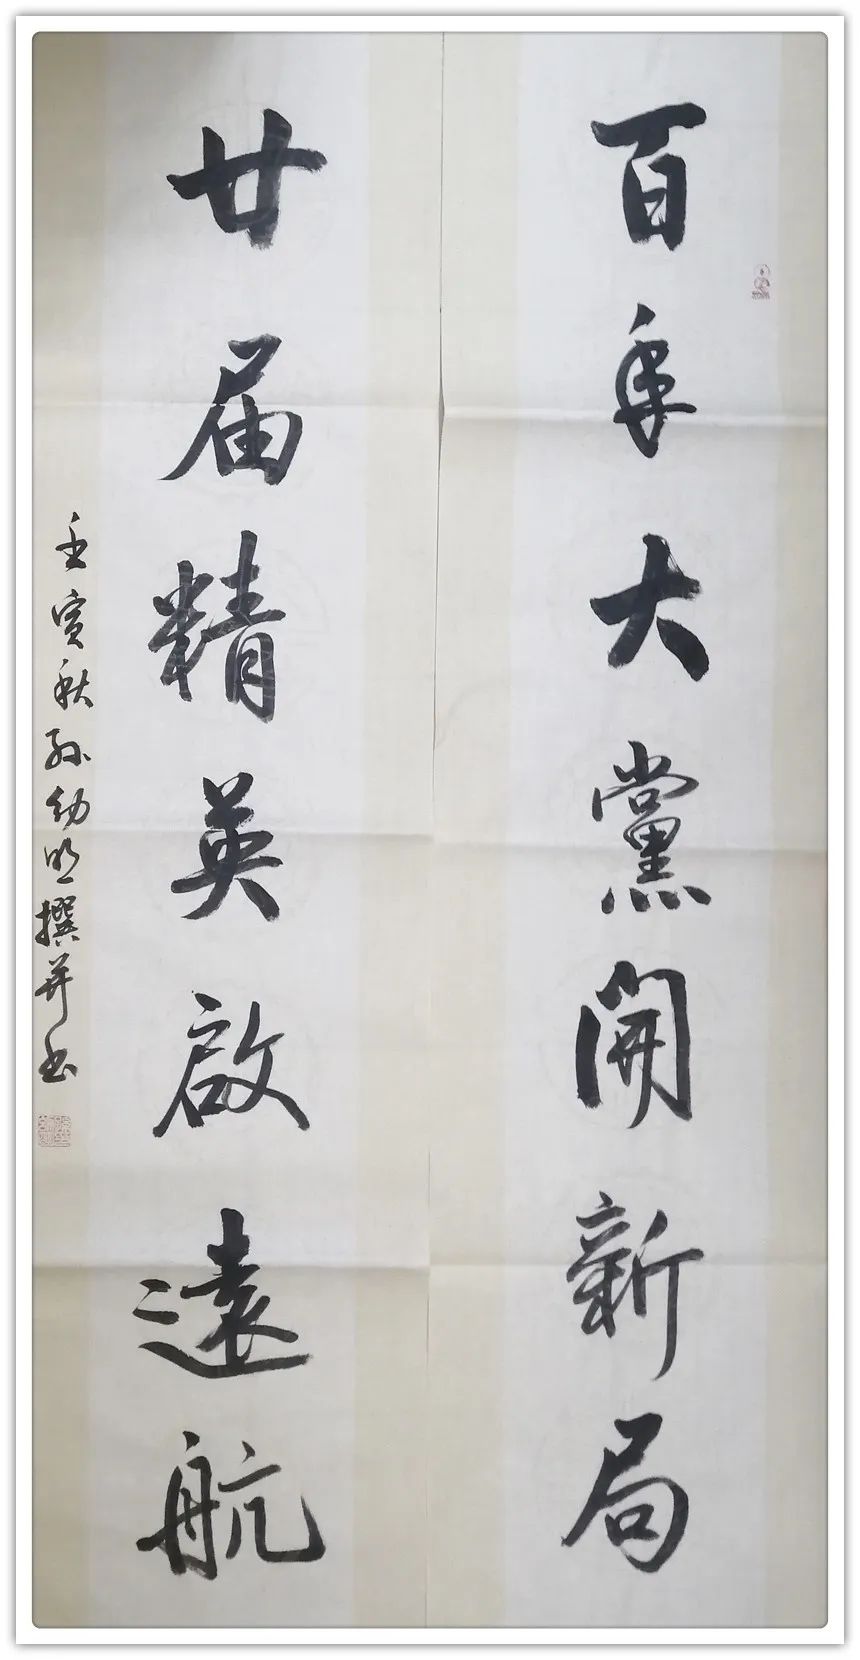 百年大黨開新局
廿届精英啟遠航
壬寅秋孙幼明撰并书